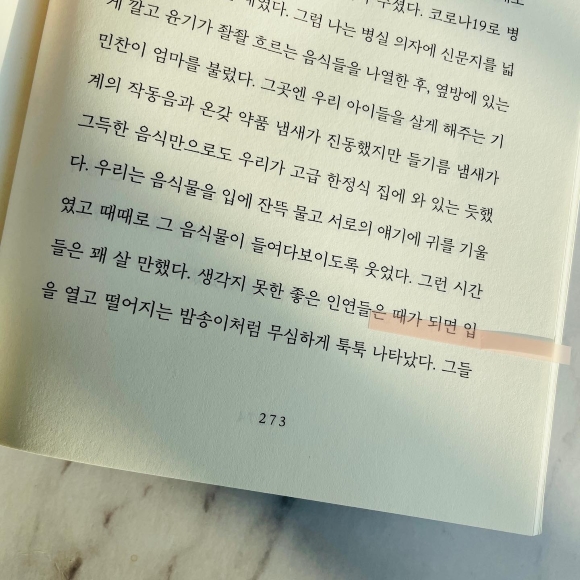 주셨다. 코로나19로 병
게 깔고 윤기가 좔좔 흐르는 음식들을 나열한 후, 옆방에 있는
민찬이 엄마를 불렀다. 그곳엔 우리 아이들을 살게 해주는 기
계의 작동음과 온갖 약품 냄새가 진동했지만 들기름 냄새가
그득한 음식만으로도 우리가 고급 한정식 집에 와 있는 듯했
다. 우리는 음식물을 입에 잔뜩 물고 서로의 얘기에 귀를 기울
였고 때때로 그 음식물이 들여다보이도록 웃었다. 그런 시간
들은 꽤 살 만했다. 생각지 못한 좋은 인연들은 때가 되면 입
을 열고 떨어지는 밤송이처럼 무심하게 툭툭 나타났다. 그들
273